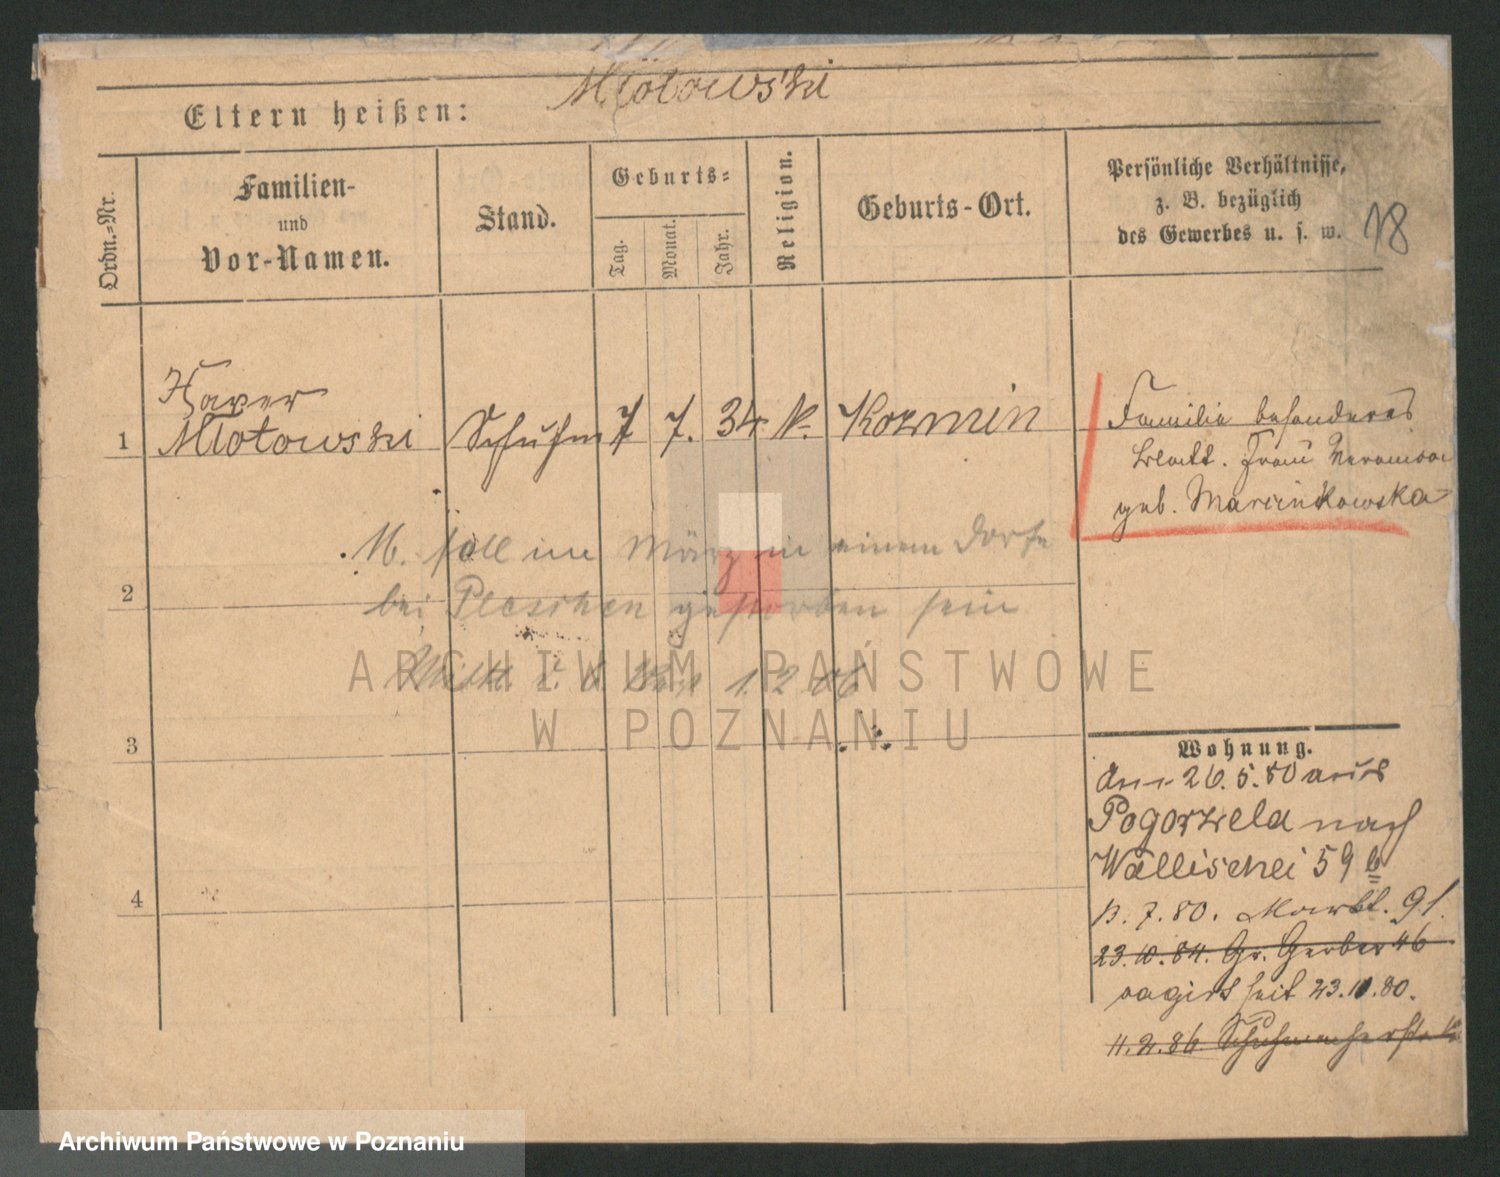 Eltern heißen:
Młotowski
Ordn.-Nr.
Familien-
und
Vor-Namen.
Stand.
Geburts-
Tag.
Monat.
Jahr.
Religion.
Geburts-Ort.
Persönliche Verhältnisse,
z. B. bezüglich
des Gewerbes u. s. w.
18
Xaver
1 Młotowski Schuhm 7 7. 34 k. Kozmin
Familie besonderes
Blatt. Frau
geb. Marcinkowska
M. soll im März in einem Dorfe
2
bei Pleschen gestorben sein
1 2 86
3
4
Wohnung.
Am 26.5.80 aus
Pogorzela nach
Wallischei 59 b
13.7.80. Markt. 91.
23.10.84. Gr. Gerber 46
vagirt seit 23.10.80.
11.2.86 Schuhmacherstr.
ARCHIWUM PAŃSTWOWE
W POZNANIU
Archiwum Państwowe w Poznaniu